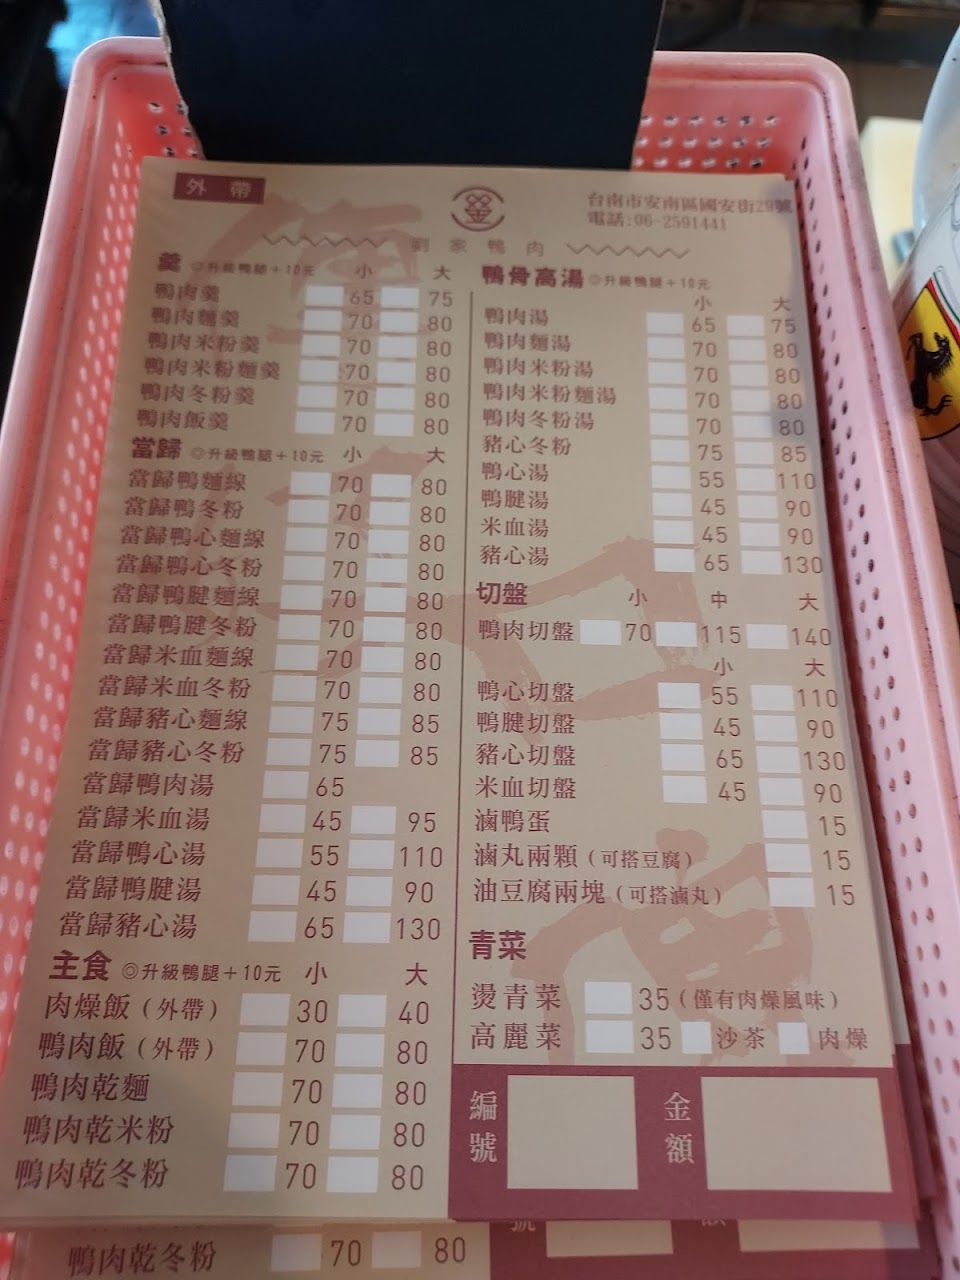 外帶
台南市安南區國安街29號
電話:06-2591441
劉家鴨肉
羹 ◎升級鴨腿+10元 小 大
鴨肉羹 65 75
鴨肉麵羹 70 80
鴨肉米粉羹 70 80
鴨肉米粉麵羹 70 80
鴨肉冬粉羹 70 80
鴨肉飯羹 70 80
當歸 ◎升級鴨腿+10元 小 大
當歸鴨麵線 70 80
當歸鴨冬粉 70 80
當歸鴨心麵線 70 80
當歸鴨心冬粉 70 80
當歸鴨腱麵線 70 80
當歸鴨腱冬粉 70 80
當歸米血麵線 70 80
當歸米血冬粉 70 80
當歸豬心麵線 75 85
當歸豬心冬粉 75 85
當歸鴨肉湯 65
當歸米血湯 45 95
當歸鴨心湯 55 110
當歸鴨腱湯 45 90
當歸豬心湯 65 130
主食 ◎升級鴨腿+10元 小 大
肉燥飯(外帶) 30 40
鴨肉飯(外帶) 70 80
鴨肉乾麵 70 80
鴨肉乾米粉 70 80
鴨肉乾冬粉 70 80
鴨骨高湯 ◎升級鴨腿+10元
小 大
鴨肉湯 65 75
鴨肉麵湯 70 80
鴨肉米粉湯 70 80
鴨肉米粉麵湯 70 80
鴨肉冬粉湯 70 80
豬心冬粉 75 85
鴨心湯 55 110
鴨腱湯 45 90
米血湯 45 90
豬心湯 65 130
切盤 小 中 大
鴨肉切盤 70 115 140
小 大
鴨心切盤 55 110
鴨腱切盤 45 90
豬心切盤 65 130
米血切盤 45 90
滷鴨蛋 15
滷丸兩顆(可搭豆腐) 15
油豆腐兩塊(可搭滷丸) 15
青菜
燙青菜 35(僅有肉燥風味)
高麗菜 35 沙茶 肉燥
編號 金額
鴨肉乾冬粉 70 80